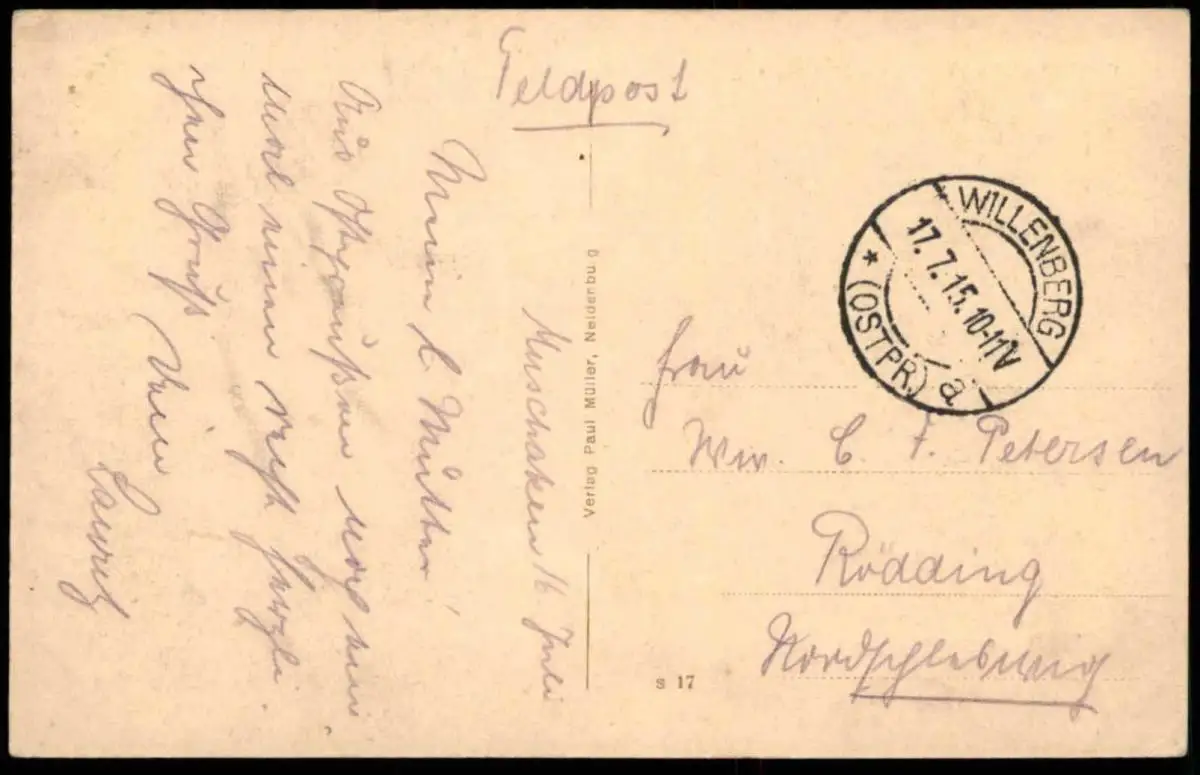 Feldpost
Muschaken 16. Juli
Mein l. Mutter!
Aus Ostpreußen noch ein
mal einen recht
Gruß Dein
Lauritz
Verlag Paul Müller, Neidenburg
WILLENBERG
* (OSTPR.) a
17.7.15.10-11V
Frau
Ww. C. F. Petersen
Rödding
Nordschleswig
S 17